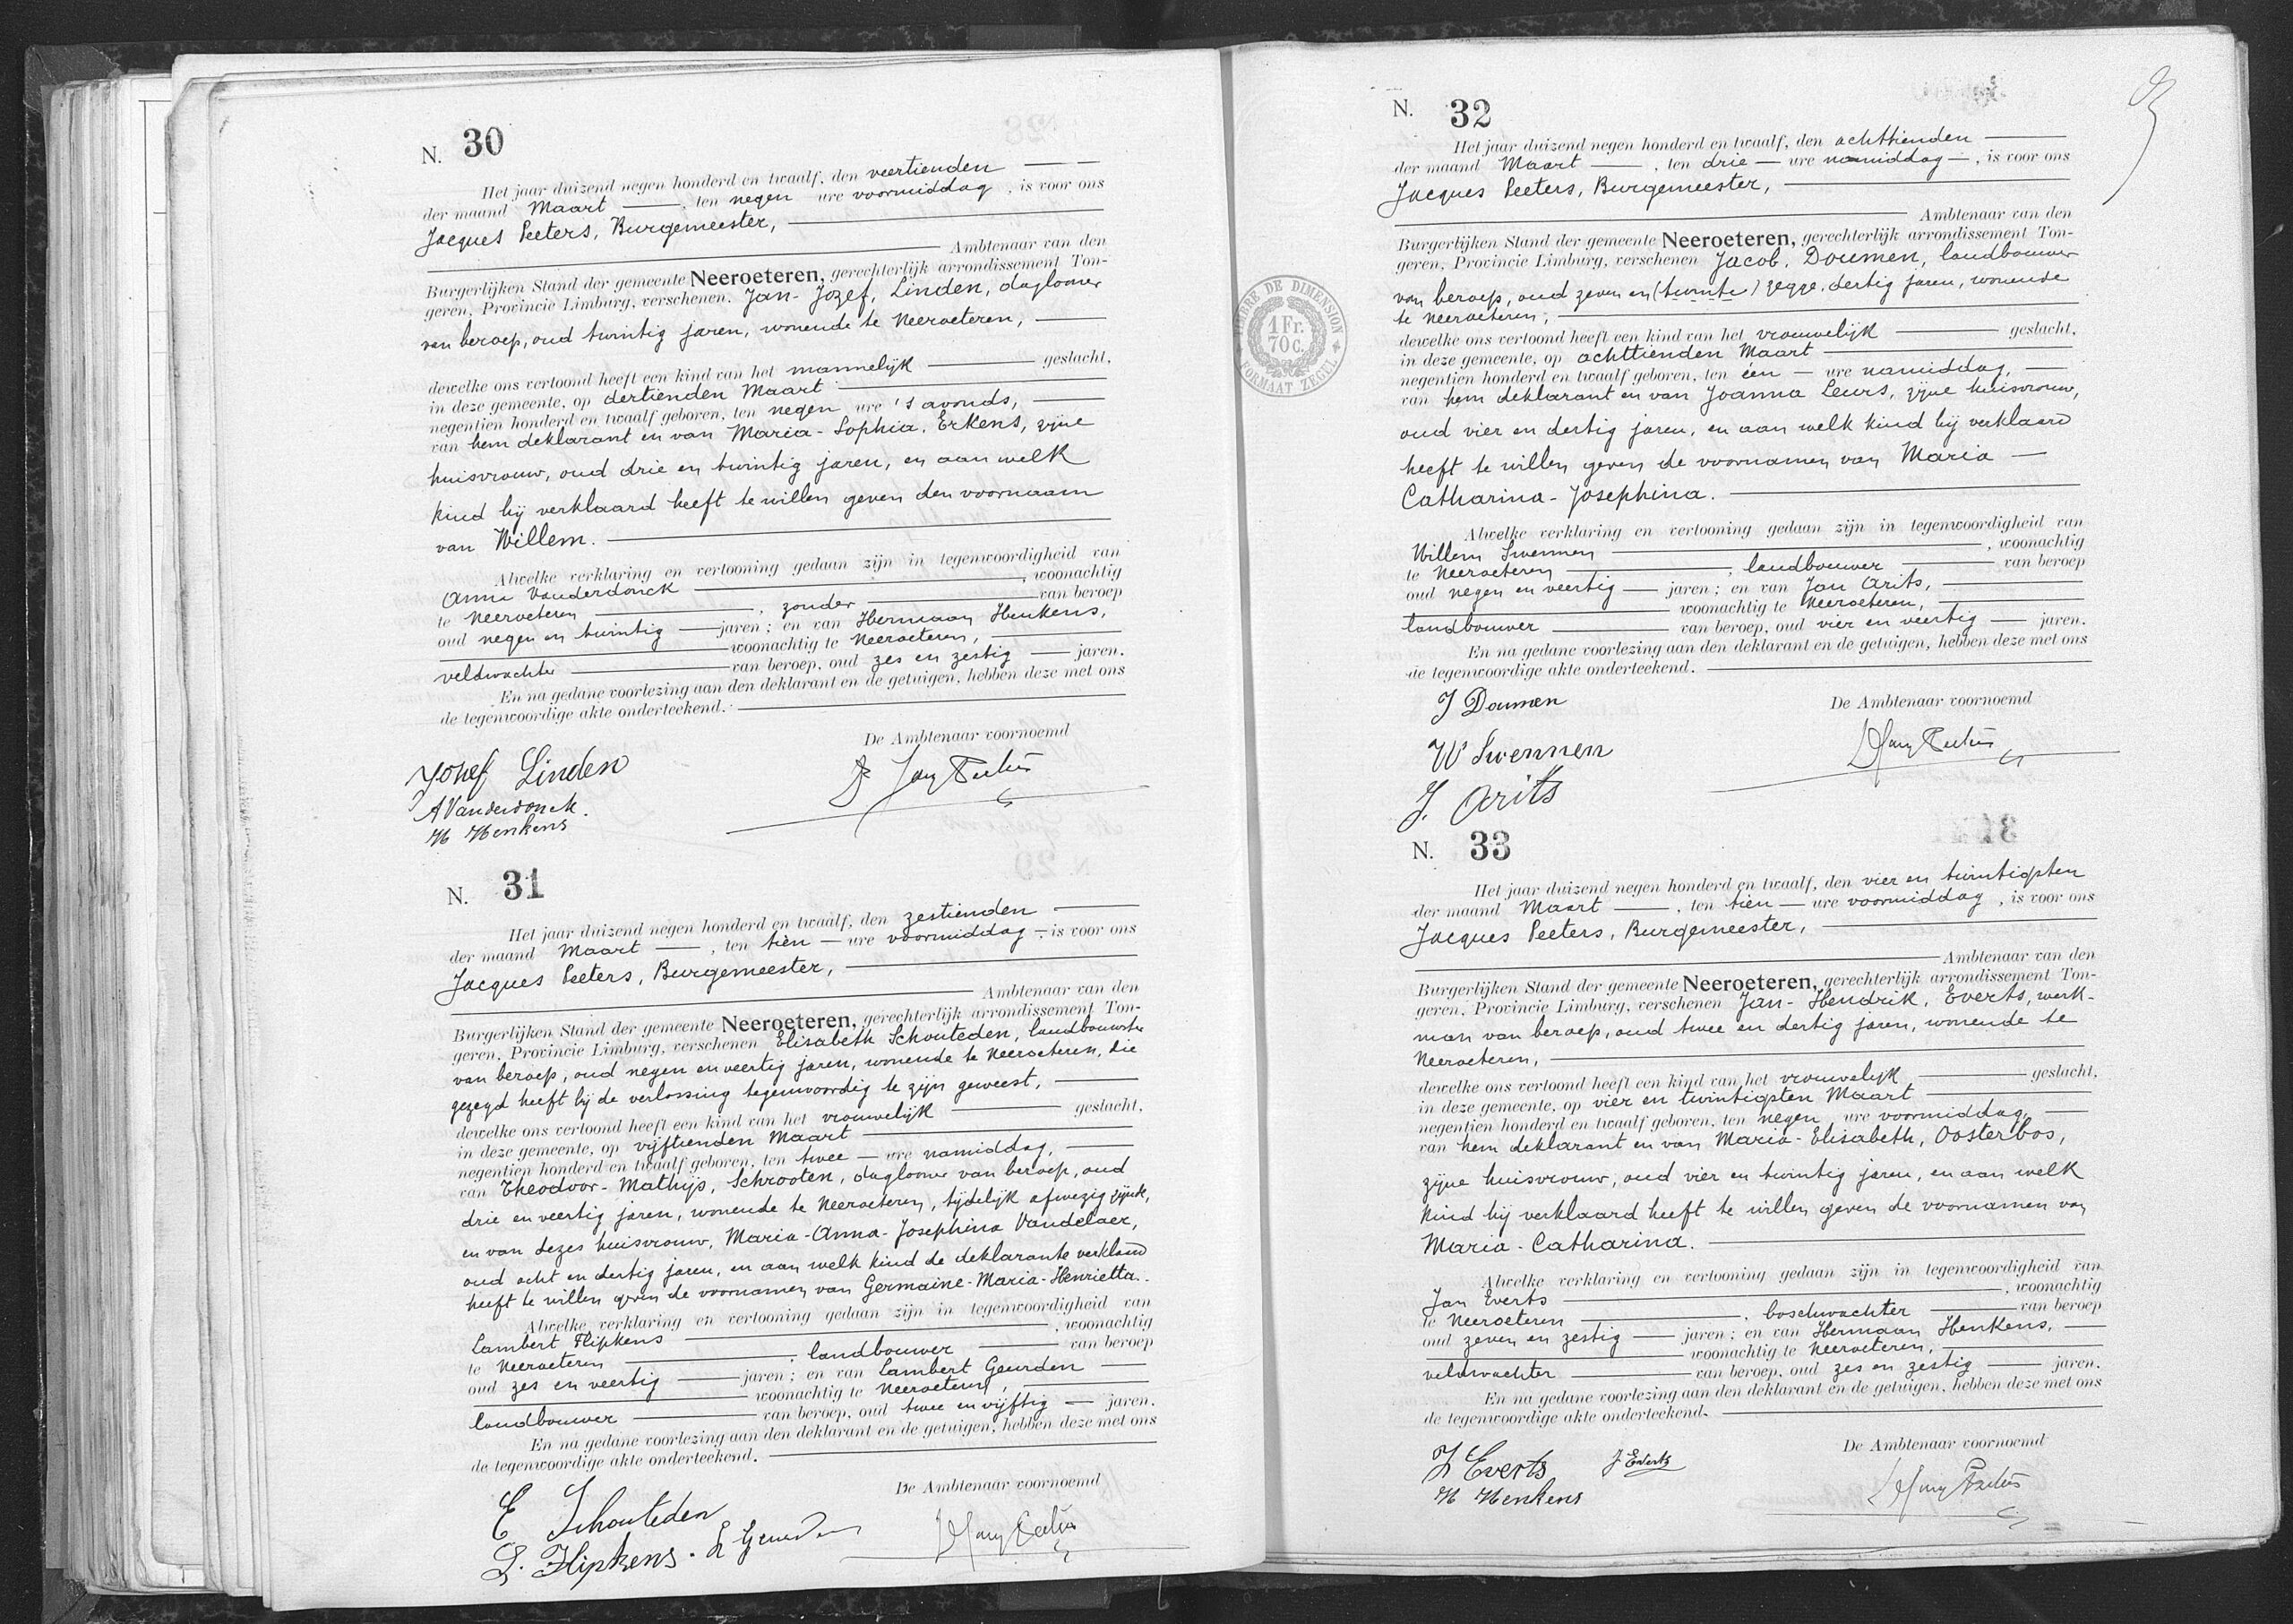 N. 30
Het jaar duizend negen honderd en twaalf, den veertienden
der maand Maart, ten negen ure voormiddag, is voor ons
Jacques Peeters, Burgemeester,
Ambtenaar van den
Burgerlijken Stand der gemeente Neeroeteren, gerechterlijk arrondissement Ton-
geren, Provincie Limburg, verschenen. Jan-Jozef, Linden, daglooner
van beroep, oud twintig jaren, wonende te Neeroeteren,
dewelke ons vertoond heeft een kind van het mannelijk geslacht,
in deze gemeente, op dertienden Maart
negentien honderd en twaalf geboren, ten negen ure 's avonds,
van hem deklarant en van Maria-Sophia. Erkens, zijne
huisvrouw, oud drie en twintig jaren, en aan welk
kind hij verklaard heeft te willen geven den voornaam
van Willem.
Alwelke verklaring en vertooning gedaan zijn in tegenwoordigheid van
Anna Vanderdonck, woonachtig
te Neeroeteren, zonder van beroep
oud negen en twintig jaren; en van Hermaan Henkens,
woonachtig te Neeroeteren,
veldwachter van beroep, oud zes en zestig jaren.
En na gedane voorlezing aan den deklarant en de getuigen, hebben deze met ons
de tegenwoordige akte onderteekend.
De Ambtenaar voornoemd
Jozef Linden
A Vanderdonck.
H Henkens
N. 31
Het jaar duizend negen honderd en twaalf, den zestienden
der maand Maart, ten tien ure voormiddag, is voor ons
Jacques Peeters, Burgemeester,
Ambtenaar van den
Burgerlijken Stand der gemeente Neeroeteren, gerechterlijk arrondissement Ton-
geren, Provincie Limburg, verschenen Elisabeth Schouteden, landbouwster
van beroep, oud negen en veertig jaren, wonende te Neeroeteren, die
gezegd heeft bij de verlossing tegenwoordig te zijn geweest,
dewelke ons vertoond heeft een kind van het vrouwelijk geslacht,
in deze gemeente, op vijftienden Maart
negentien honderd en twaalf geboren, ten twee ure namiddag,
van Theodoor-Mathijs, Schrooten, daglooner van beroep, oud
drie en veertig jaren, wonende te Neeroeteren, tijdelijk afwezig zijnde,
en van dezes huisvrouw, Maria-Anna-Josephina Vandelaer,
oud acht en dertig jaren, en aan welk kind de deklarante verklaard
heeft te willen geven de voornamen van Germaine-Maria-Henrietta.
Alwelke verklaring en vertooning gedaan zijn in tegenwoordigheid van
Lambert Flipkens, woonachtig
te Neeroeteren, landbouwer van beroep
oud zes en veertig jaren; en van Lambert Geurden
woonachtig te Neeroeteren,
landbouwer van beroep, oud twee en vijftig jaren.
En na gedane voorlezing aan den deklarant en de getuigen, hebben deze met ons
de tegenwoordige akte onderteekend.
De Ambtenaar voornoemd
E Schouteden
L. Flipkens. L Geurden
N. 32
Het jaar duizend negen honderd en twaalf, den achttienden
der maand Maart, ten drie ure namiddag, is voor ons
Jacques Peeters, Burgemeester,
Ambtenaar van den
Burgerlijken Stand der gemeente Neeroeteren, gerechterlijk arrondissement Ton-
geren, Provincie Limburg, verschenen Jacob, Doumen, landbouwer
van beroep, oud zeven en (twinte) zegge dertig jaren, wonende
te Neeroeteren,
dewelke ons vertoond heeft een kind van het vrouwelijk geslacht,
in deze gemeente, op achttienden Maart
negentien honderd en twaalf geboren, ten één ure namiddag,
van hem deklarant en van Joanna Leurs, zijne huisvrouw,
oud vier en dertig jaren, en aan welk kind hij verklaard
heeft te willen geven de voornamen van Maria-
Catharina-Josephina.
Alwelke verklaring en vertooning gedaan zijn in tegenwoordigheid van
Willem Swennen, woonachtig
te Neeroeteren, landbouwer van beroep
oud negen en veertig jaren; en van Jan Arits,
woonachtig te Neeroeteren,
landbouwer van beroep, oud vier en veertig jaren.
En na gedane voorlezing aan den deklarant en de getuigen, hebben deze met ons
de tegenwoordige akte onderteekend.
De Ambtenaar voornoemd
J Doumen
W Swennen
J. Arits
TIMBRE DE DIMENSION
1 Fr.
70 c.
FORMAAT ZEGEL
N. 33
Het jaar duizend negen honderd en twaalf, den vier en twintigsten
der maand Maart, ten tien ure voormiddag, is voor ons
Jacques Peeters, Burgemeester,
Ambtenaar van den
Burgerlijken Stand der gemeente Neeroeteren, gerechterlijk arrondissement Ton-
geren, Provincie Limburg, verschenen Jan-Hendrik, Everts, werk-
man van beroep, oud twee en dertig jaren, wonende te
Neeroeteren,
dewelke ons vertoond heeft een kind van het vrouwelijk geslacht,
in deze gemeente, op vier en twintigsten Maart
negentien honderd en twaalf geboren, ten negen ure voormiddag,
van hem deklarant en van Maria-Elisabeth, Oosterbos,
zijne huisvrouw, oud vier en twintig jaren, en aan welk
kind hij verklaard heeft te willen geven de voornamen van
Maria-Catharina.
Alwelke verklaring en vertooning gedaan zijn in tegenwoordigheid van
Jan Everts, woonachtig
te Neeroeteren, boschwachter van beroep
oud zeven en zestig jaren; en van Hermaan Henkens,
woonachtig te Neeroeteren,
veldwachter van beroep, oud zes en zestig jaren.
En na gedane voorlezing aan den deklarant en de getuigen, hebben deze met ons
de tegenwoordige akte onderteekend.
De Ambtenaar voornoemd
J Everts J Everts
H Henkens